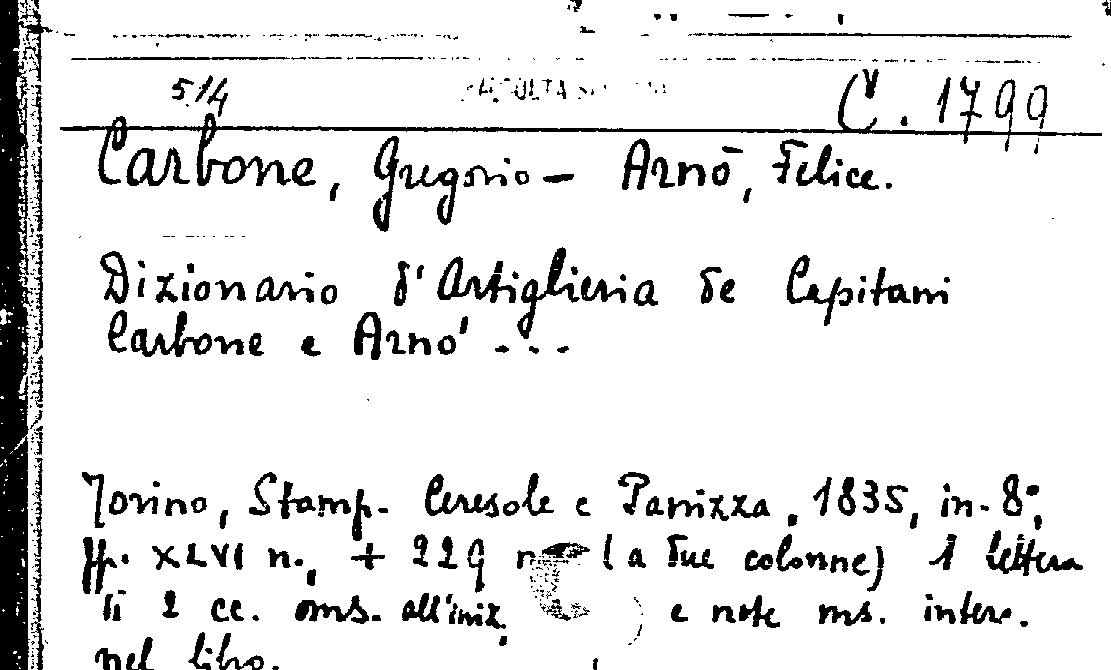 514 C. 1799
Carbone, Gregorio - Arnò, Felice.
Dizionario d'Artiglieria de Capitani
Carbone e Arnò ...
Torino, Stamp. Ceresole e Panizza, 1835, in-8°,
pp. XLVI n., + 229 n (a due colonne) 1 lettera
di 2 cc. ms. all'iniz. e note ms. inter.
nel libro.